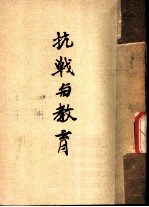 抗戰与教育